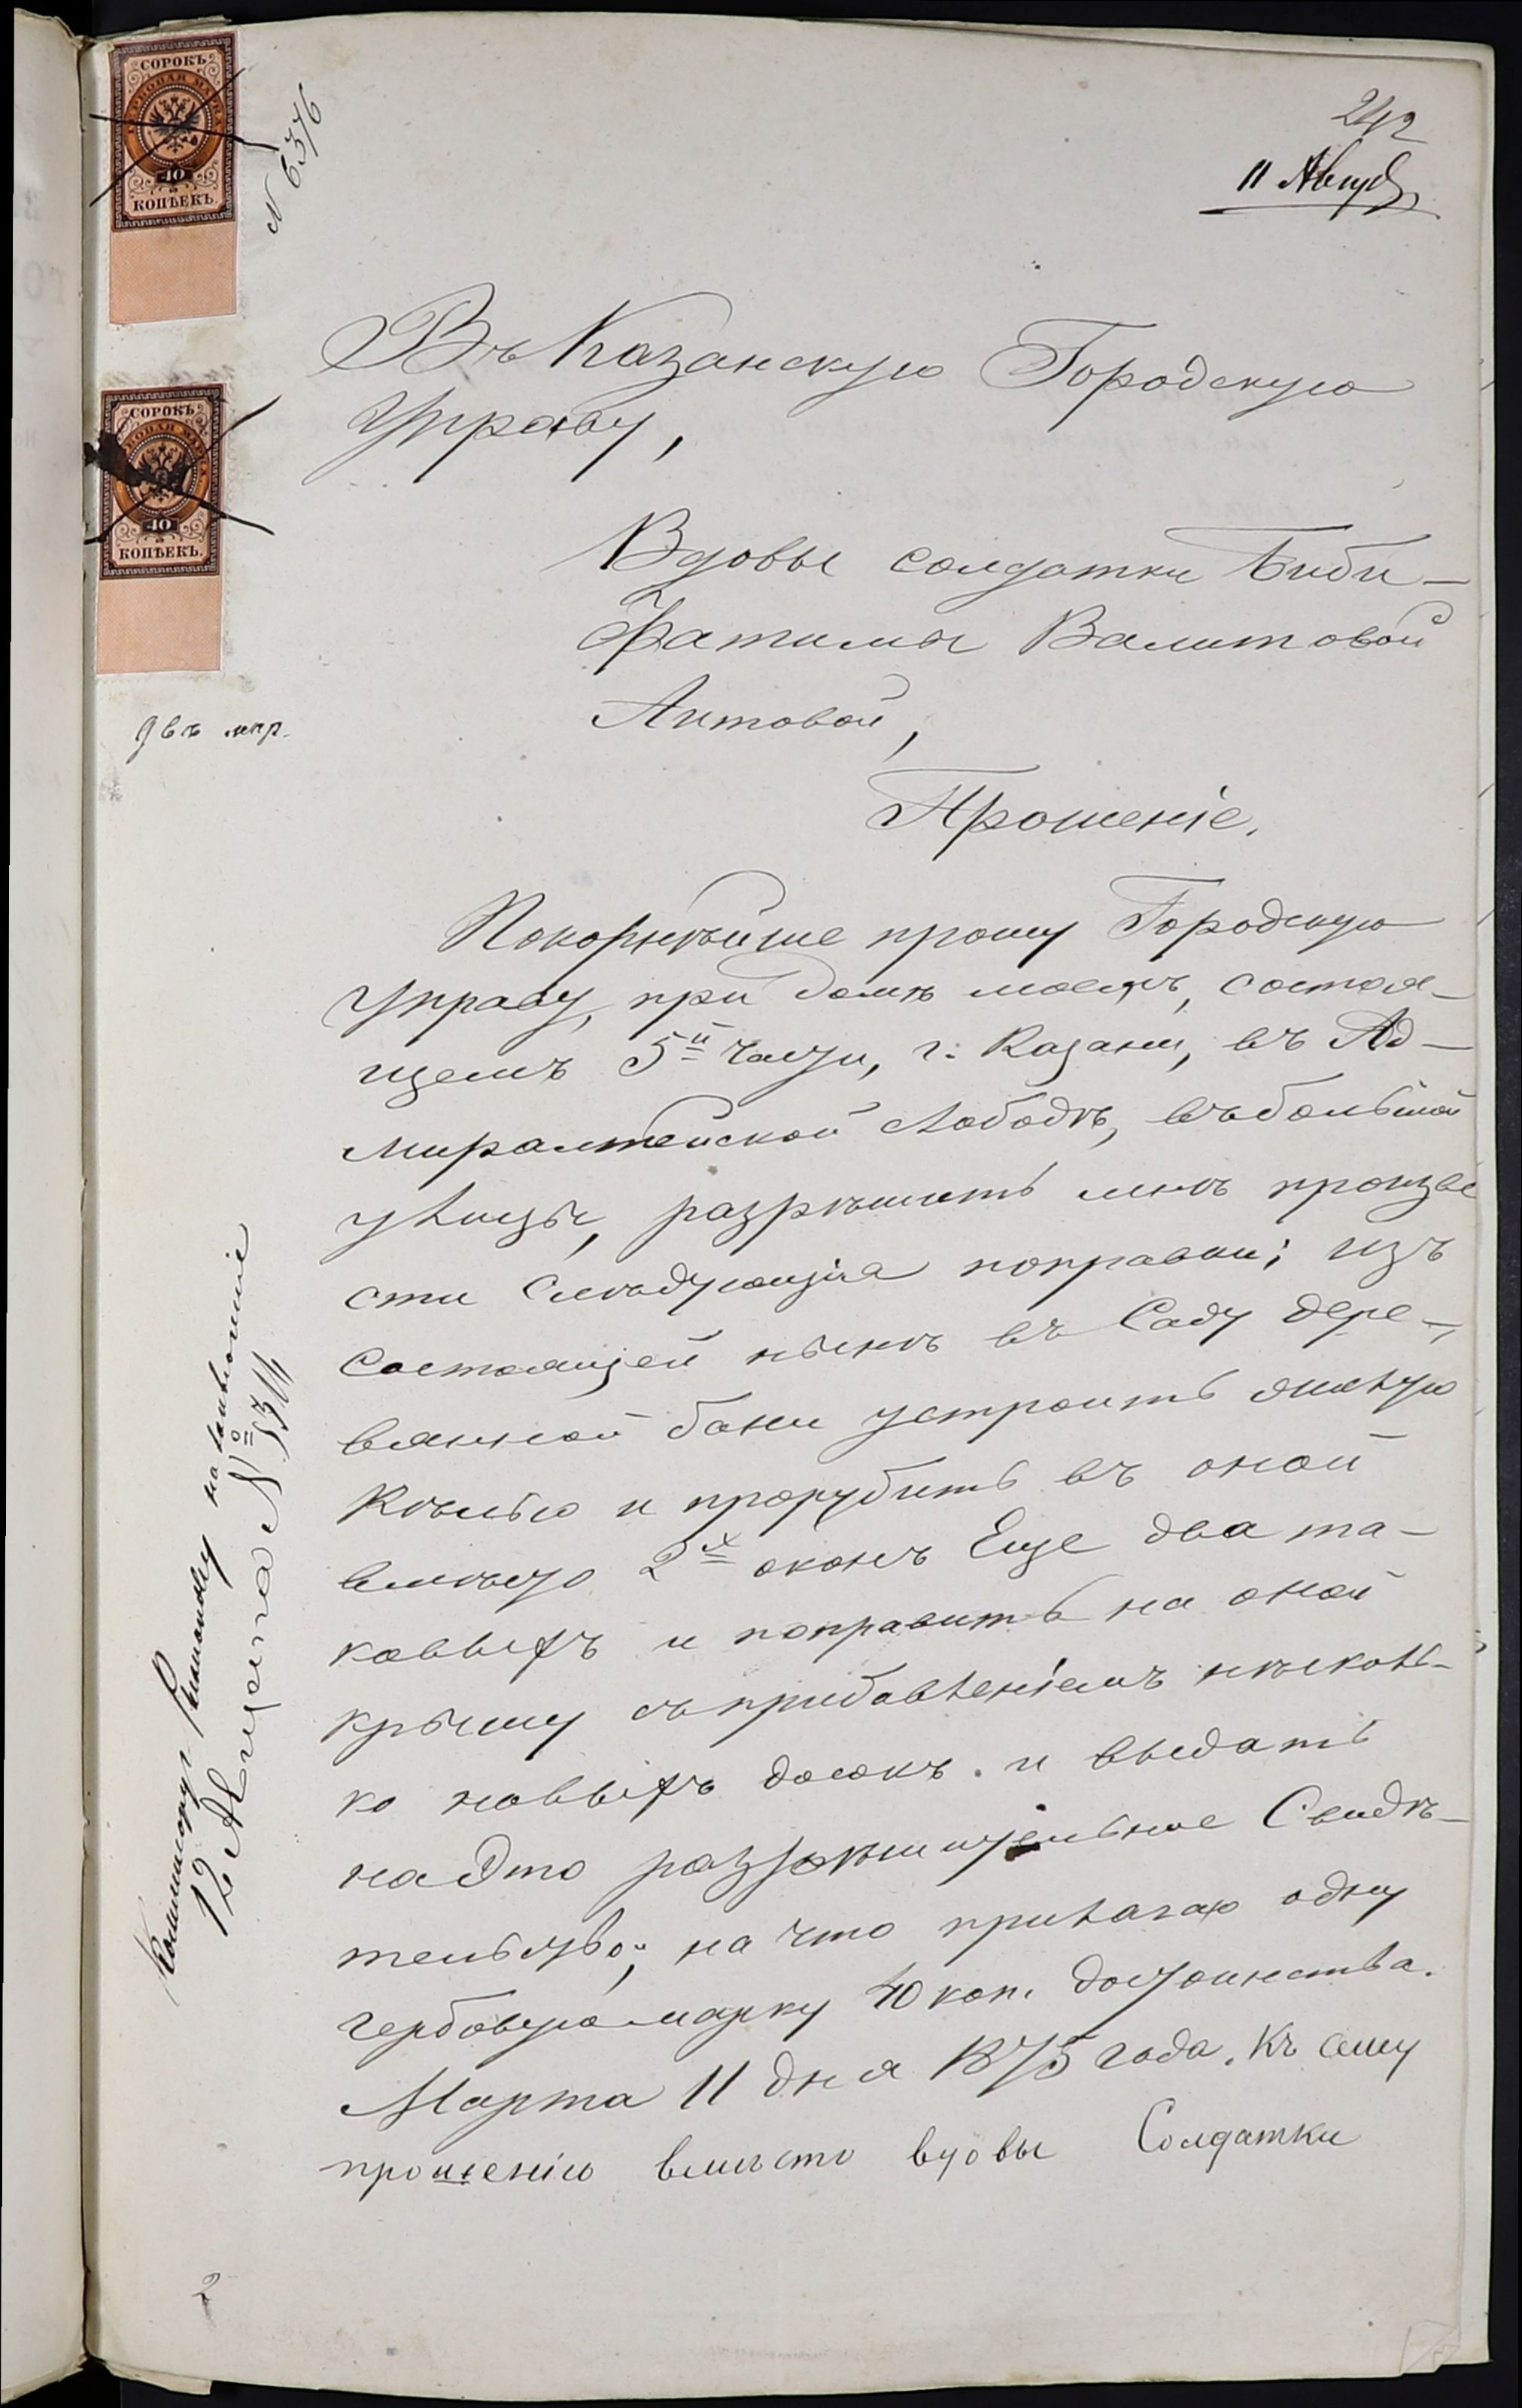 СОРОКЪ
ГЕРБОВАЯ МАРКА
40
КОПѢЕКЪ.
N 6376
242
11 Август
Въ Казанскую Городскую
Управу,
СОРОКЪ
ГЕРБОВАЯ МАРКА
40
КОПѢЕКЪ.
двѣ мар.
Вдовы солдатки Биби-
Фатимы Валитовой
Аитовой,
Прошеніе.
Покорнѣйше прошу Городскую
Управу, при домѣ моемъ, состоя-
щемъ 5й части, г: Казани, въ Ад-
миралтейской слободѣ, въ большой
улицы, разрѣшить мнѣ произве
сти слѣдующія поправки; изъ
состоящей нынѣ въ саду дере-
вянной бани устроить жилую
Кѣлью и прорубить въ оной
вмѣсто 2х оконъ Еще два та-
ковыхъ и поправить на оной
крышу съ прибавленіемъ нѣсколь-
ко новыхъ досокъ. и выдать
на Это разрѣшительное Свидѣ-
тельство; на что прилагаю одну
гербовую марку 40 коп. достоинства.
Марта 11 дня 1875 года. Къ сему
прошенію вмѣсто вдовы Солдатки
12 Августа №5311
2